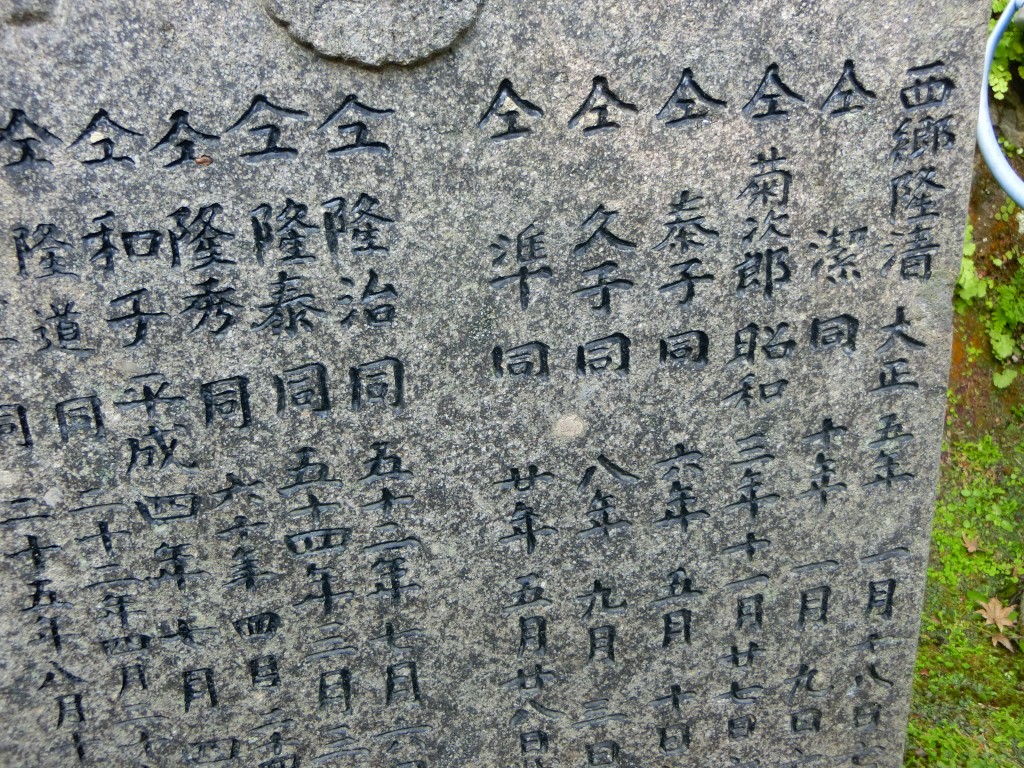 西郷隆清 大正五年 一月十八日
仝 潔 同 十年 一月 九日
仝 菊次郎 昭和三年十一月廿七日
仝 泰子 同 六年 五月 十日
仝 久子 同 八年 九月 三日
仝 準 同 廿年 五月廿八日
仝 隆治 同 五十二年七月
仝 隆泰 同 五十四年三月三
仝 隆秀 同 六十年四月
仝 和子 平成四年十月四
仝 隆道 同 二十三年四月
同 二十五年八月十